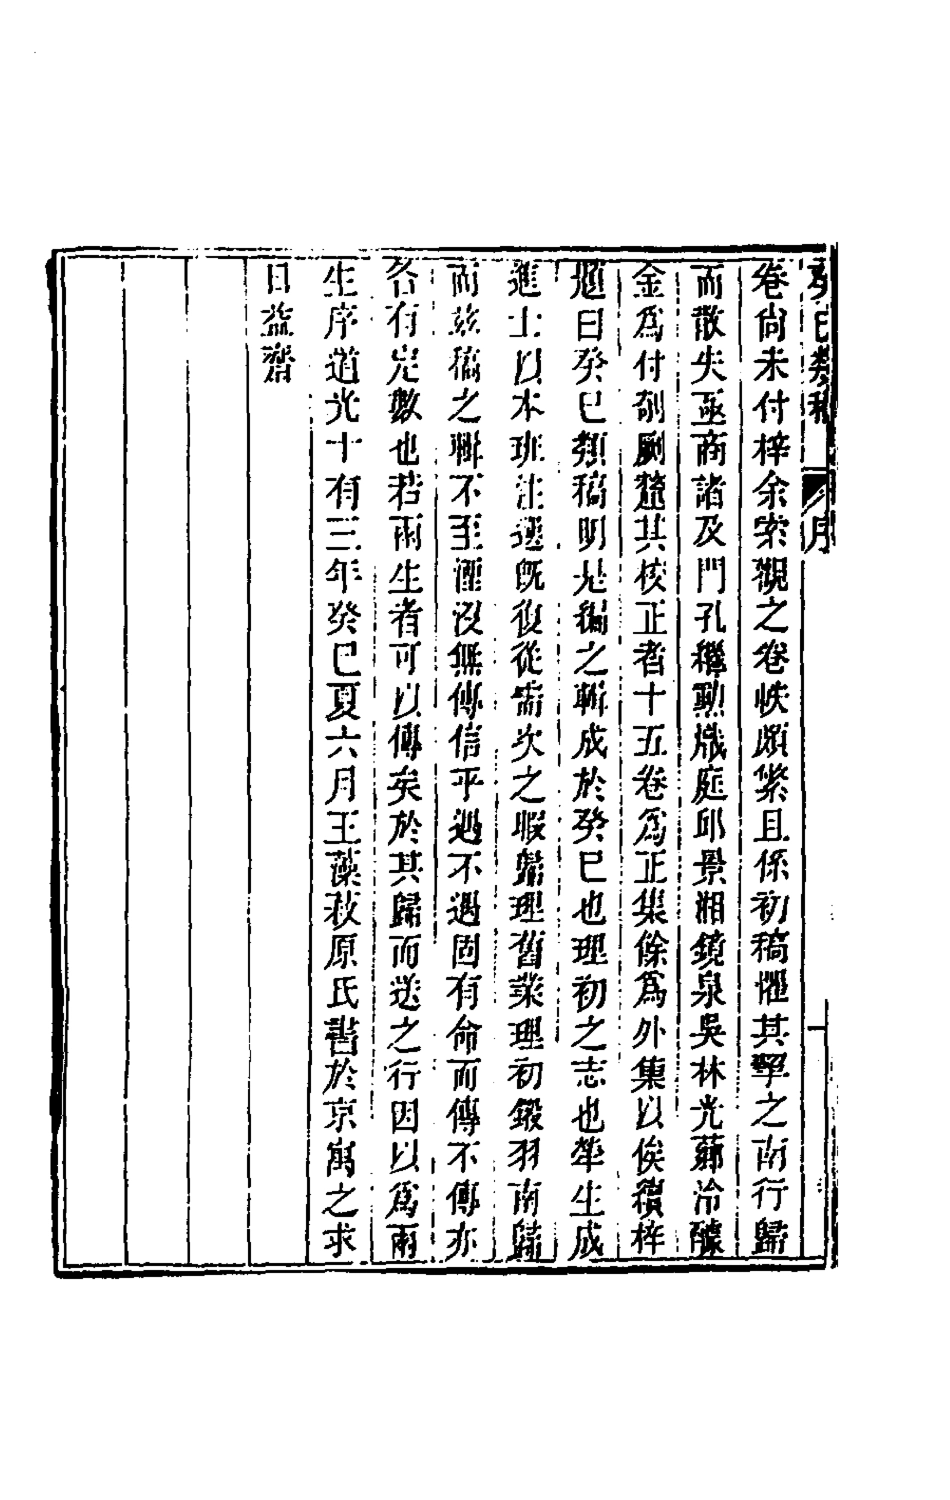 癸巳類稿 序 一
卷尙未付梓余索觀之卷帙頗繁且係初稿懼其擕之南行歸
而散失亟商諸及門孔繼勲熾庭邱景湘鏡泉吳林光蘅泠醵
金爲付剞劂蕆其校正者十五卷爲正集餘爲外集以俟續梓
題曰癸巳類稿明是編之輯成於癸巳也理初之志也犖生成
進士以本班注選旣復從需次之暇歸理舊業理初鎩羽南歸
而玆稿之輯不至湮沒無傳信乎遇不遇固有命而傳不傳亦
各有定數也若兩生者可以傳矣於其歸而送之行因以爲兩
生序道光十有三年癸巳夏六月王藻菽原氏書於京寓之求
日益齋